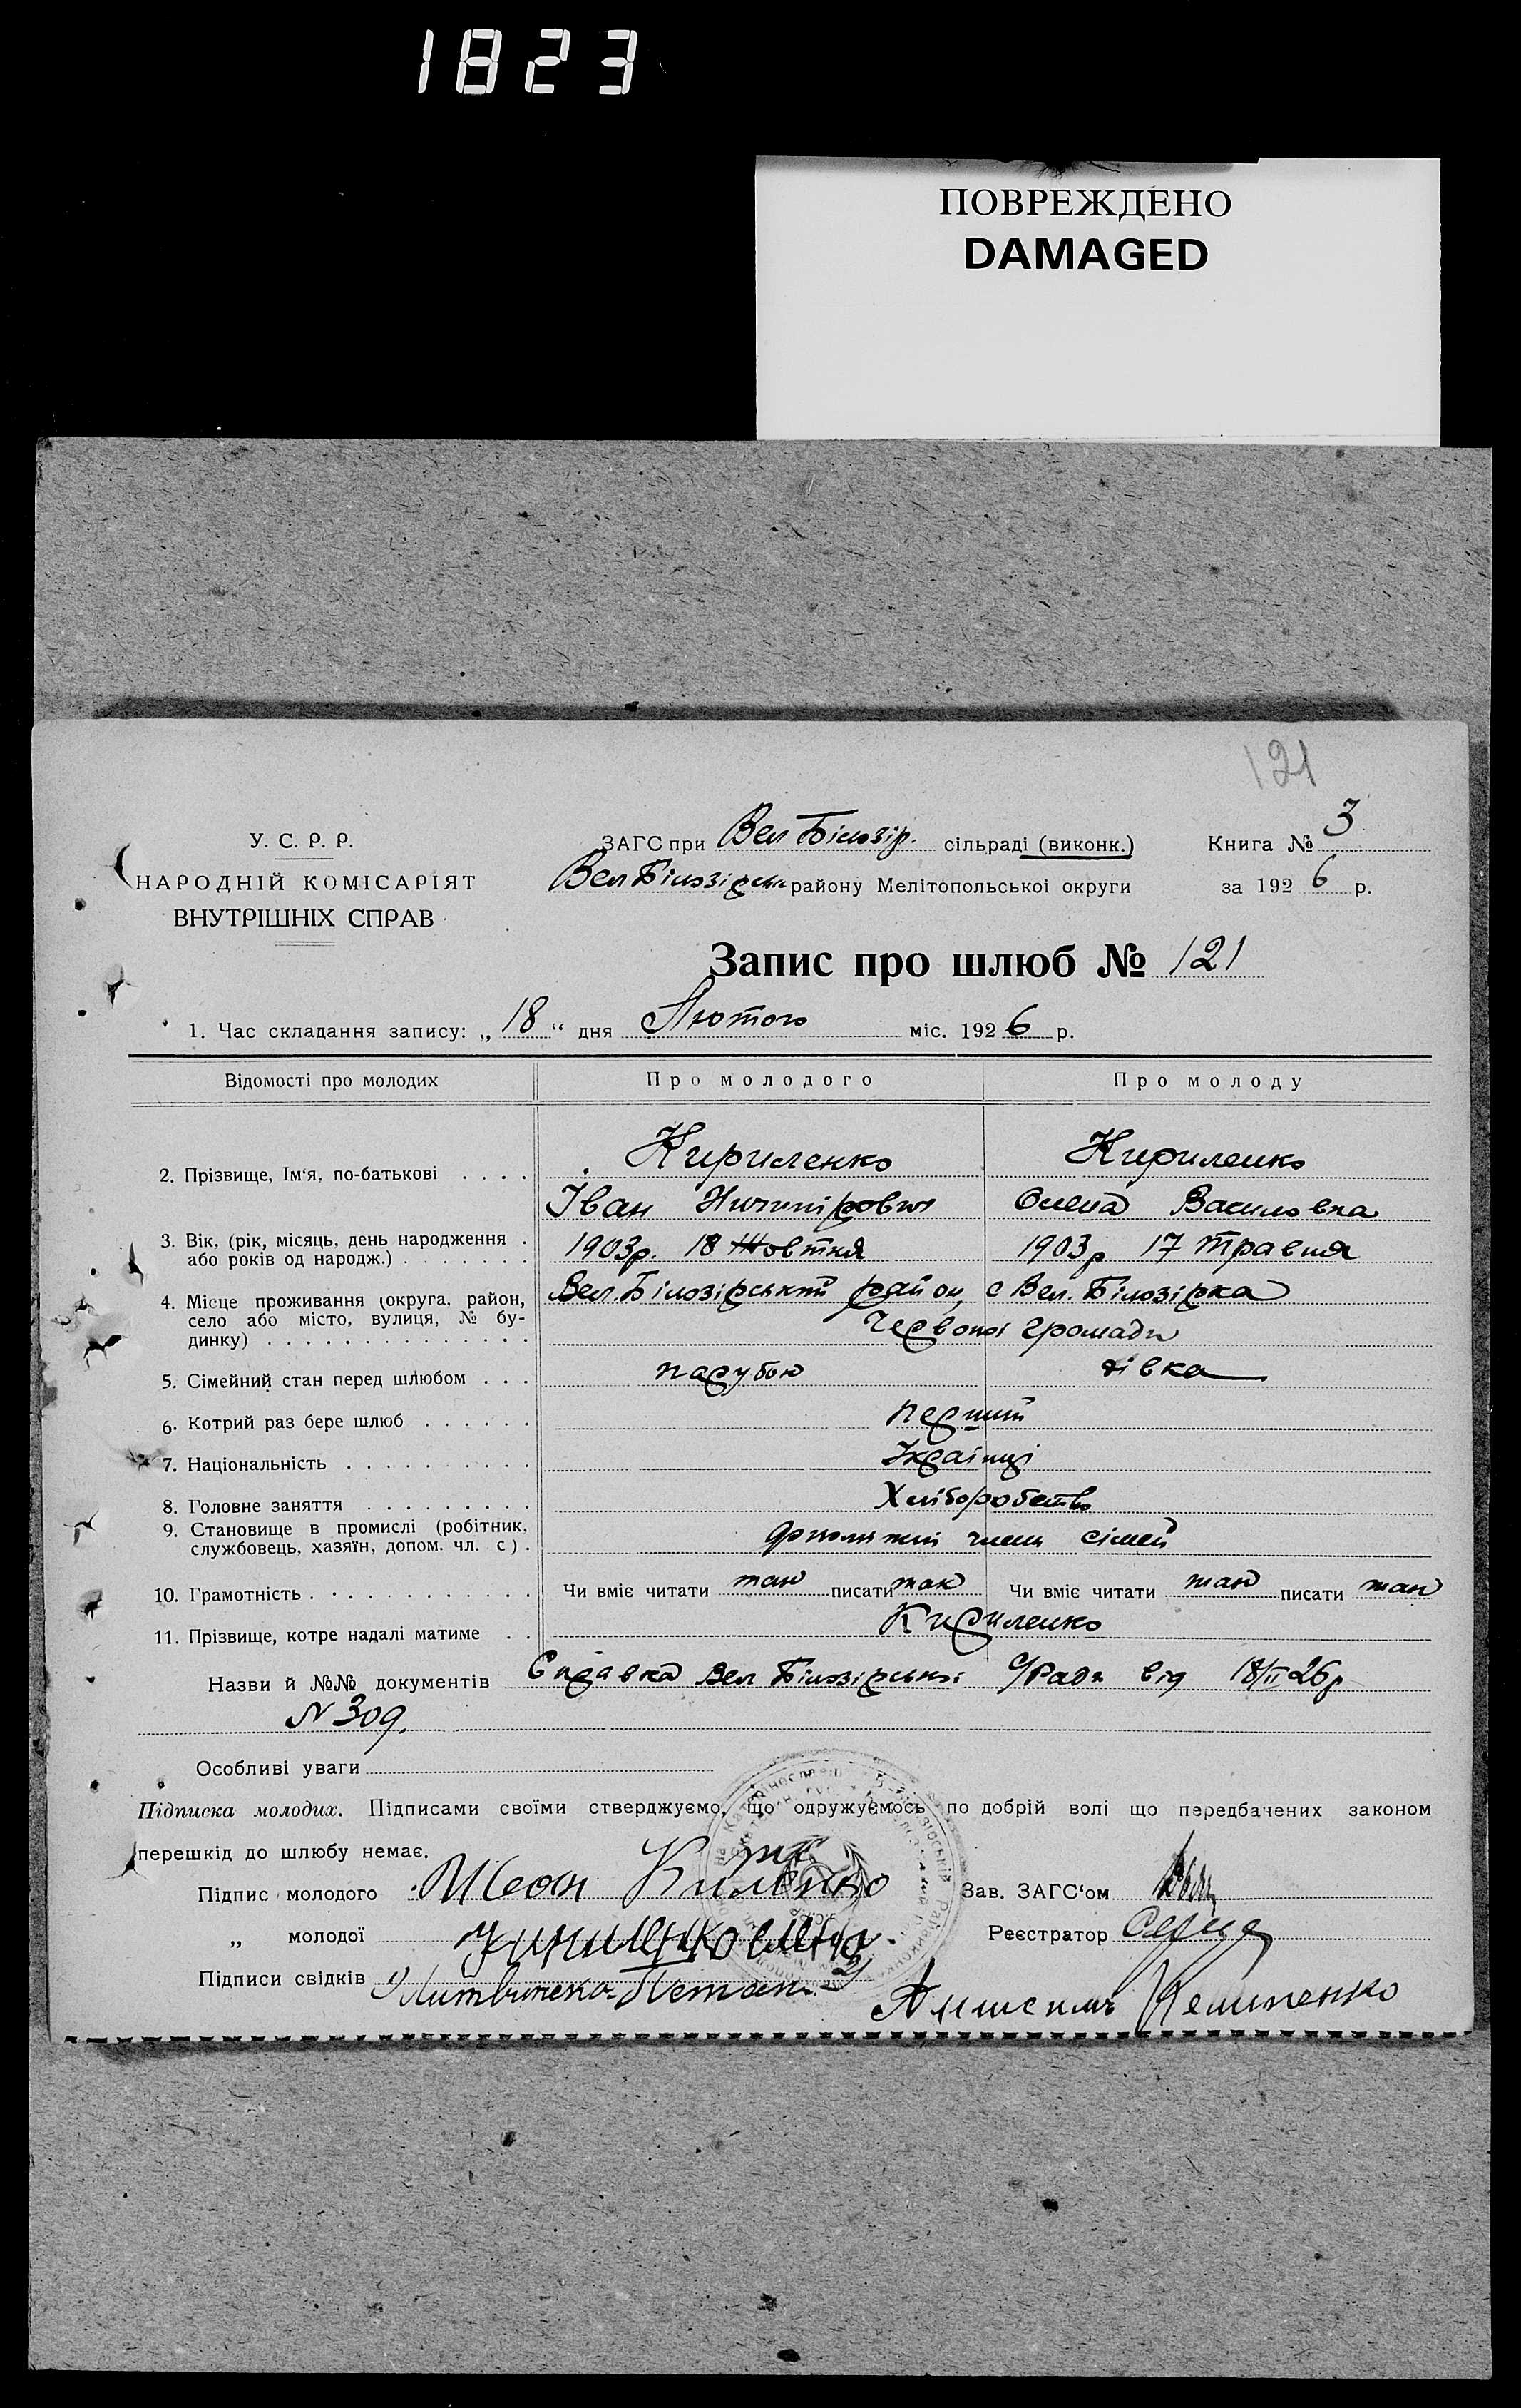 1823
ПОВРЕЖДЕНО
DAMAGED
121
У. С. Р. Р.
НАРОДНІЙ КОМІСАРІЯТ
ВНУТРІШНІХ СПРАВ
ЗАГС при Вел Білозір. сільраді (виконк.)
Книга № 3
району Мелітопольськоі округи
за 1926 р.
Запис про шлюб № 121
1. Час складання запису: „18“ дня Лютого міс. 1926 р.
Відомості про молодих
Про молодого
Про молоду
2. Прізвище, Ім'я, по-батькові . . . .
Кириленко
Кириленко
Іван
Олена Василовна
3. Вік, (рік, місяць, день народження .
або років од народж.) . . . . . . .
1903р. 18 Жовтня
1903р 17 Травня
4. Місце проживання (округа, район,
село або місто, вулиця, № бу-
динку) . . . . . . . . . . . . . .
Вел. Білозірський район, с Вел. Білозірка
Червоної громади
5. Сімейний стан перед шлюбом . . .
парубок
дівка
6. Котрий раз бере шлюб . . . . . .
перший
7. Національність . . . . . . . . . .
Українці
8. Головне заняття . . . . . . . . .
Хліборобство
9. Становище в промислі (робітник,
службовець, хазяїн, допом. чл. с) .
члени сімей
10. Грамотність . . . . . . . . . . . .
Чи вміє читати так писати так
Чи вміє читати так писати так
11. Прізвище, котре надалі матиме . .
Кириленко
Назви й №№ документів Вел Білозірської с/Ради від 18/II 26р
N 309.
Особливі уваги
Підписка молодих. Підписами своїми стверджуємо, що одружуємось по добрій волі що передбачених законом
перешкід до шлюбу немає.
Підпис молодого
Зав. ЗАГС'ом
„ молодої
Реєстратор
Підписи свідків 1) 2)